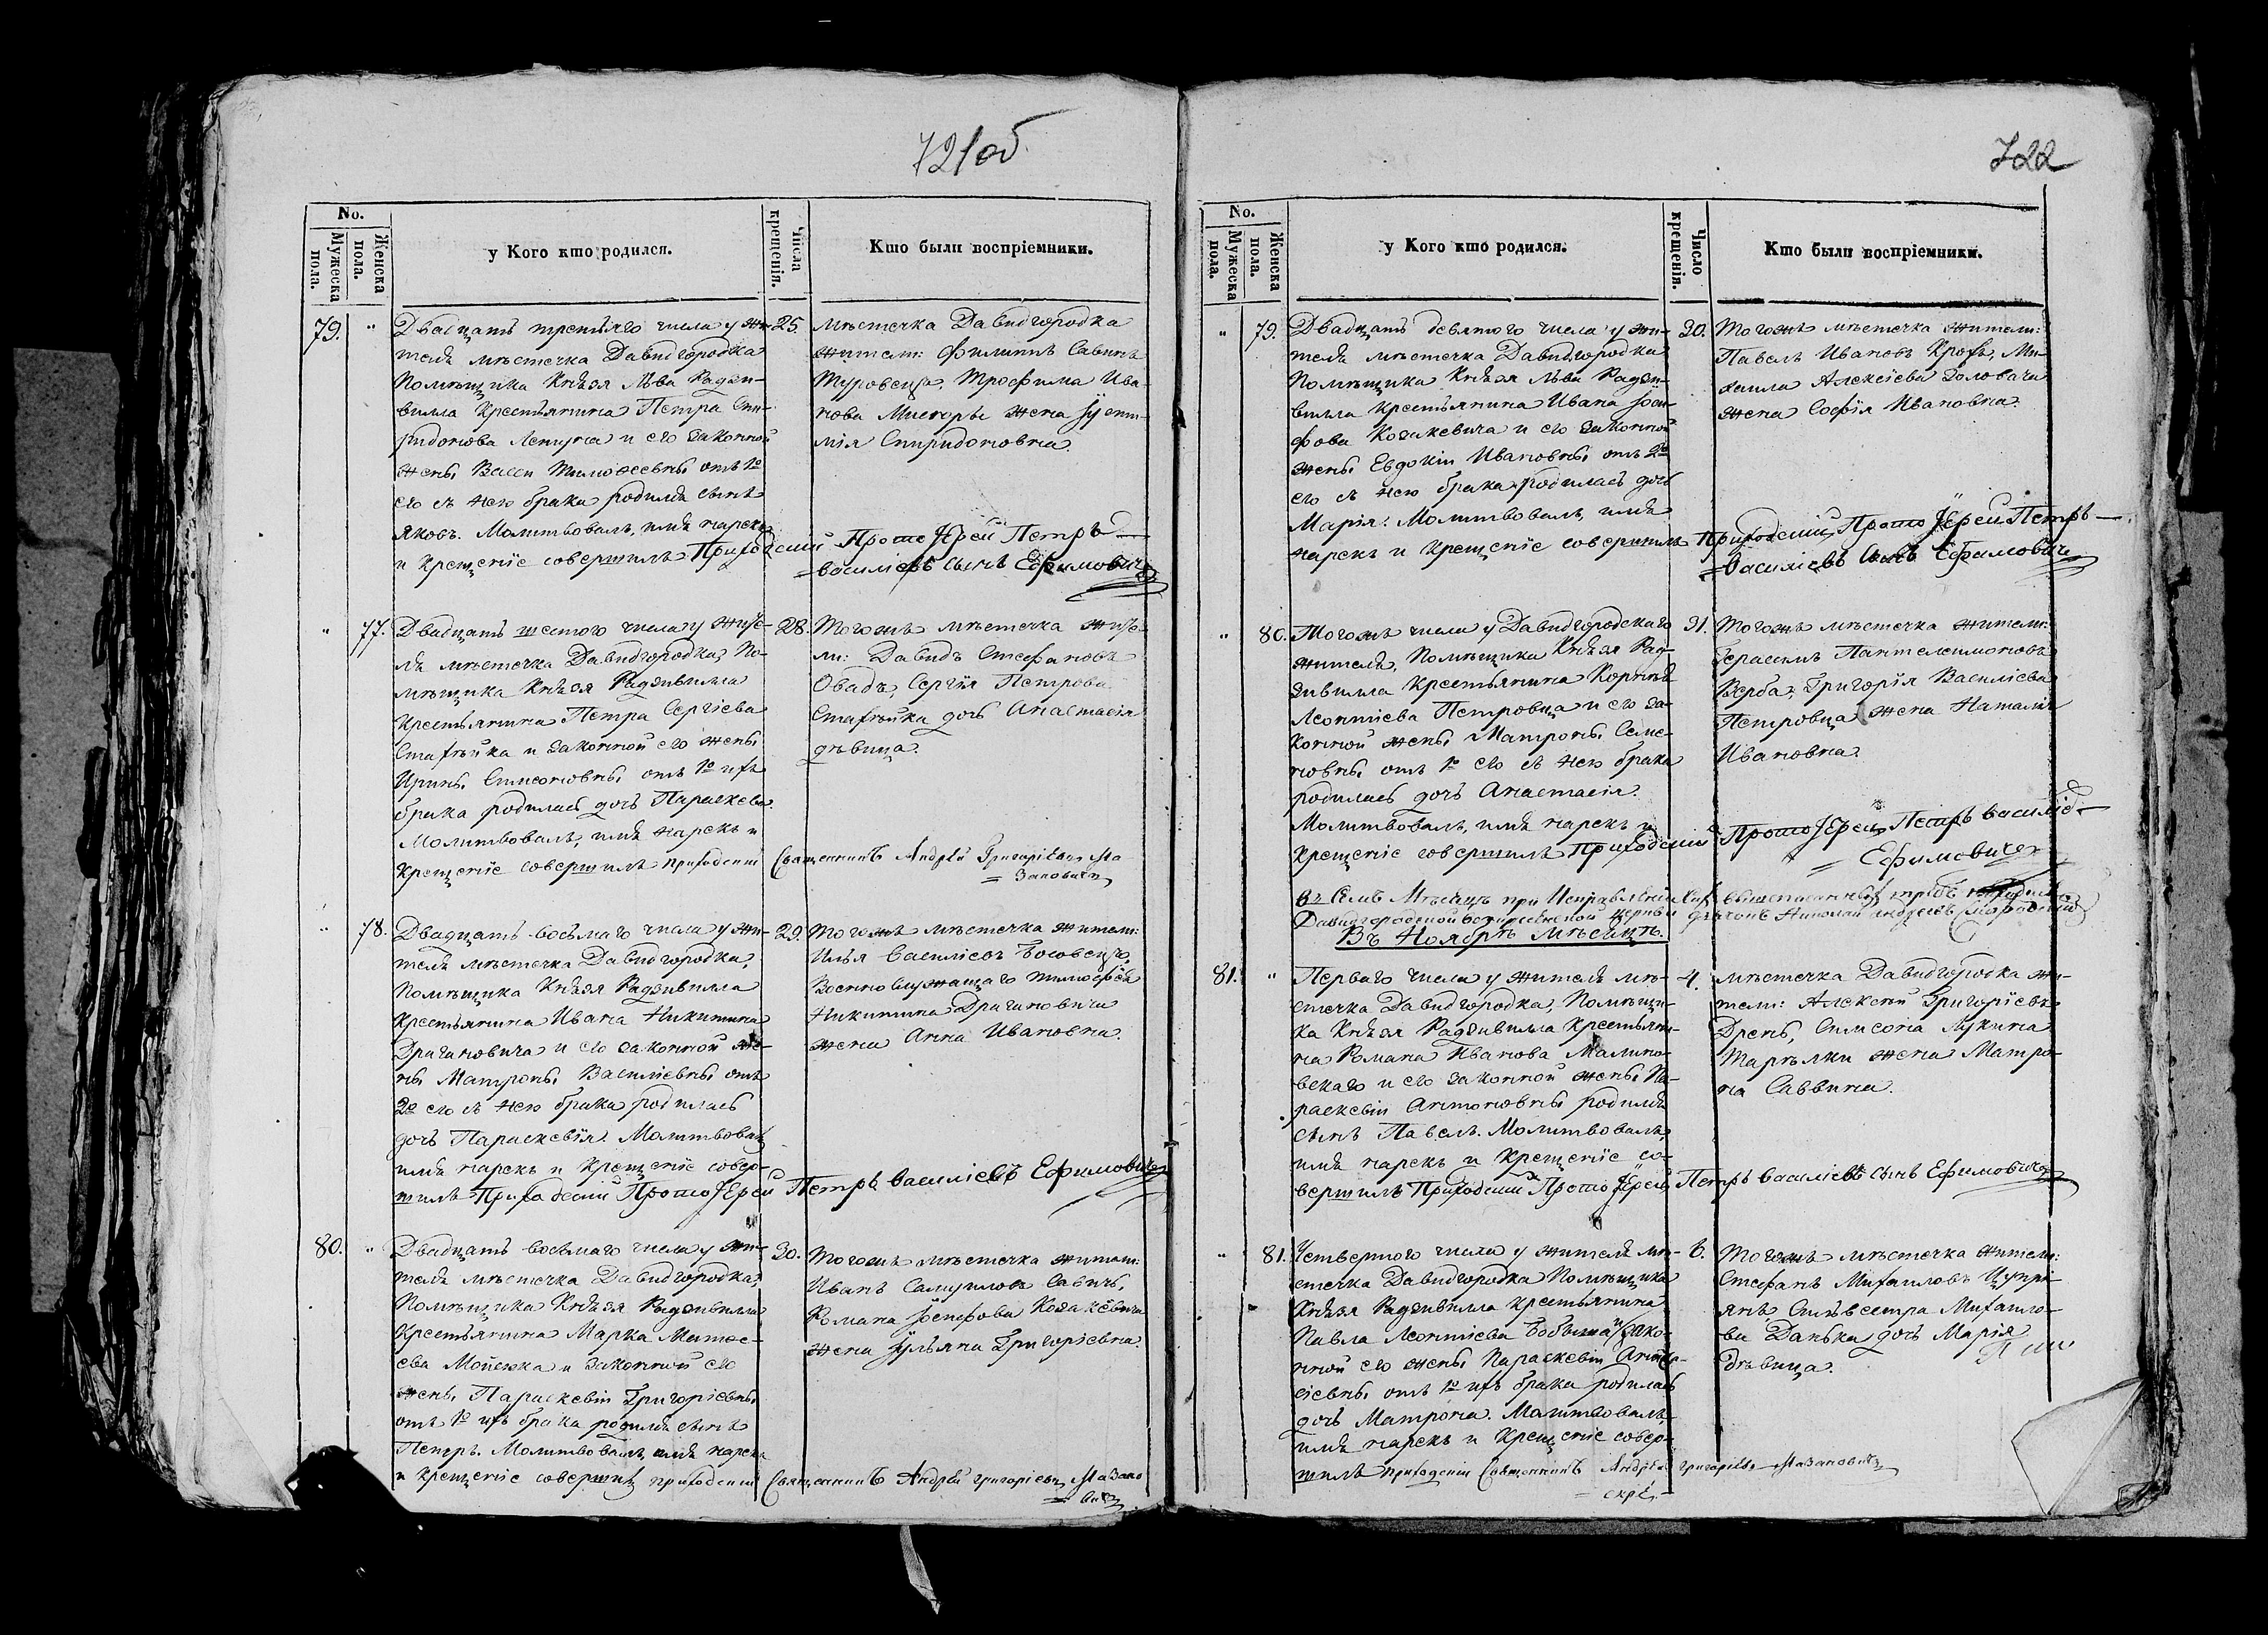 721об
No.
Мужеска пола.
Женска пола.
у Кого кто родился.
Числа крещенія.
Кто были воспріемники.
79.
"
Двадцать третьяго числа у жи-
теля мѣстечка Давидгородка
Помѣщика Князя Льва Радзи-
вилла Крестьянина Петра Спи-
ридонова и его законной
жены Васси Тимофеевны отъ 1го
его съ нею брака родился сынъ
Яковъ. Молитвовалъ, имя нарекъ
и Крещеніе совершилъ Приходскій ПротоІерей Петръ
Василіевъ сынъ Ефимовичъ
25.
мѣстечка Давидгородка
жители: Филиппъ Савинъ
Туровецъ, Трофима Ива-
нова Мисюры жена
Спиридоновна.
"
77.
Двадцать шестого числа у жите-
ля мѣстечка Давидгородка, По-
мѣщика Князя Радзивилла
Крестьянина Петра Сергіева
Стахѣйка и законной его жены
Ирины Симеоновны отъ 1го ихъ
брака родилась дочь Параскева.
Молитвовалъ, имя нарекъ и
Крещеніе совершилъ приходскій Священникъ Андрей Григоріевъ Ма
= зановичъ
28.
Тогожъ мѣстечка жите-
ли: Давидъ Стефановъ
Овадъ, Сергія Петрова
Стахѣйка дочь Анастасія
дѣвица.
"
78.
Двадцать восьмаго числа у жи-
теля мѣстечка Давидгородка,
Помѣщика Князя Радзивилла
Крестьянина Ивана Никитина
Драгановича и его законной же-
ны Матроны Василіевны отъ
2го его съ нею брака родилась
дочь Параскевія. Молитвовалъ
имя нарекъ и Крещеніе совер-
шилъ Приходскій ПротоІерей Петръ Василіевъ Ефимовичъ
29.
Тогожъ мѣстечка жители:
Илья Василіевъ
Военнослужащаго Тимофея
Никитина Драгановича
жена Анна Ивановна.
80.
"
Двадцать восьмаго числа у жи-
теля мѣстечка Давидгородка,
Помѣщика Князя Радзивилла
Крестьянина Марка Матфе-
ева Мойсюка и законной его
жены Параскевіи Григоріевны
отъ 1го ихъ брака родился сынъ
Петръ. Молитвовалъ, имя нарекъ
и Крещеніе совершилъ приходскій Священникъ Андрей Григоріевъ Мазано
= вичъ
30.
Тогожъ мѣстечка жители:
Иванъ Самуиловъ Савичъ,
Романа Іосифова Козакевича
жена Іульяна Григоріевна.
722
No.
Мужеска пола.
Женска пола.
у Кого кто родился.
Число крещенія.
Кто были воспріемники.
"
79.
Двадцать девятого числа у жи-
теля мѣстечка Давидгородка
Помѣщика Князя Льва Радзи-
вилла Крестьянина Ивана Іоси-
фова Козакевича и его законной
жены Евдокіи Ивановны отъ 2го
его съ нею брака родилась дочь
Марія. Молитвовалъ, имя
нарекъ и Крещеніе совершилъ Приходскій ПротоІерей Петръ
= Василіевъ сынъ Ефимовичъ
30.
Тогожъ мѣстечка жители:
Павелъ Ивановъ Крохъ, Ми-
хаила Алексіева Головача
жена Софія Ивановна.
"
80.
Тогожъ числа у Давидгородскаго
жителя, Помѣщика Князя Рад-
зивилла Крестьянина Корнія
Леонтіева Петровца и его за-
конной жены Матроны Семе-
новны отъ 1го его съ нею брака
родилась дочь Анастасія.
Молитвовалъ, имя нарекъ и
Крещеніе совершилъ Приходскій ПротоІерей Петръ Василіев
= Ефимовичъ
31.
Тогожъ мѣстечка жители:
Герасимъ Пантелеимоновъ
Верба, Григорія Василіева
Петровца жена Наталія
Ивановна.
въ семъ Мѣсяцѣ при Исправленіи всѣхъ вышеписанныхъ требъ находился
Давидгородской церкви дьячокъ Николай Андреевъ
Въ Ноябрѣ Мѣсяцѣ.
81.
"
Перваго числа у жителя мѣ-
стечка Давидгородка, Помѣщи-
ка Князя Радзивилла Крестьяни-
на Романа Иванова Малино-
вскаго и его законной жены Па-
раскевіи Антоновны родился
сынъ Павелъ. Молитвовалъ,
имя нарекъ и Крещеніе со-
вершилъ Приходскій ПротоІерей Петръ Василіевъ сынъ Ефимовичъ
4.
мѣстечка Давидгородка жи-
тели: Алексѣй Григоріевъ
Дрень, Симеона Лукина
Тарѣлки жена Матро-
на Саввина.
"
81.
Четвертого числа у жителя мѣ-
стечка Давидгородка Помѣщика
Князя Радзивилла Крестьянина
Павла Леонтіева и зако-
нной его жены Параскевіи
отъ 1го ихъ брака родилась
дочь Матрона. Молитвовалъ,
имя нарекъ и Крещеніе совер-
шилъ приходскій Священникъ Андрей Григоріевъ Мазановичъ
6.
Тогожъ мѣстечка жители:
Стефанъ Михаиловъ Цупрі-
янъ Сильвестра Михаило-
ва Данька дочь Марія
дѣвица.